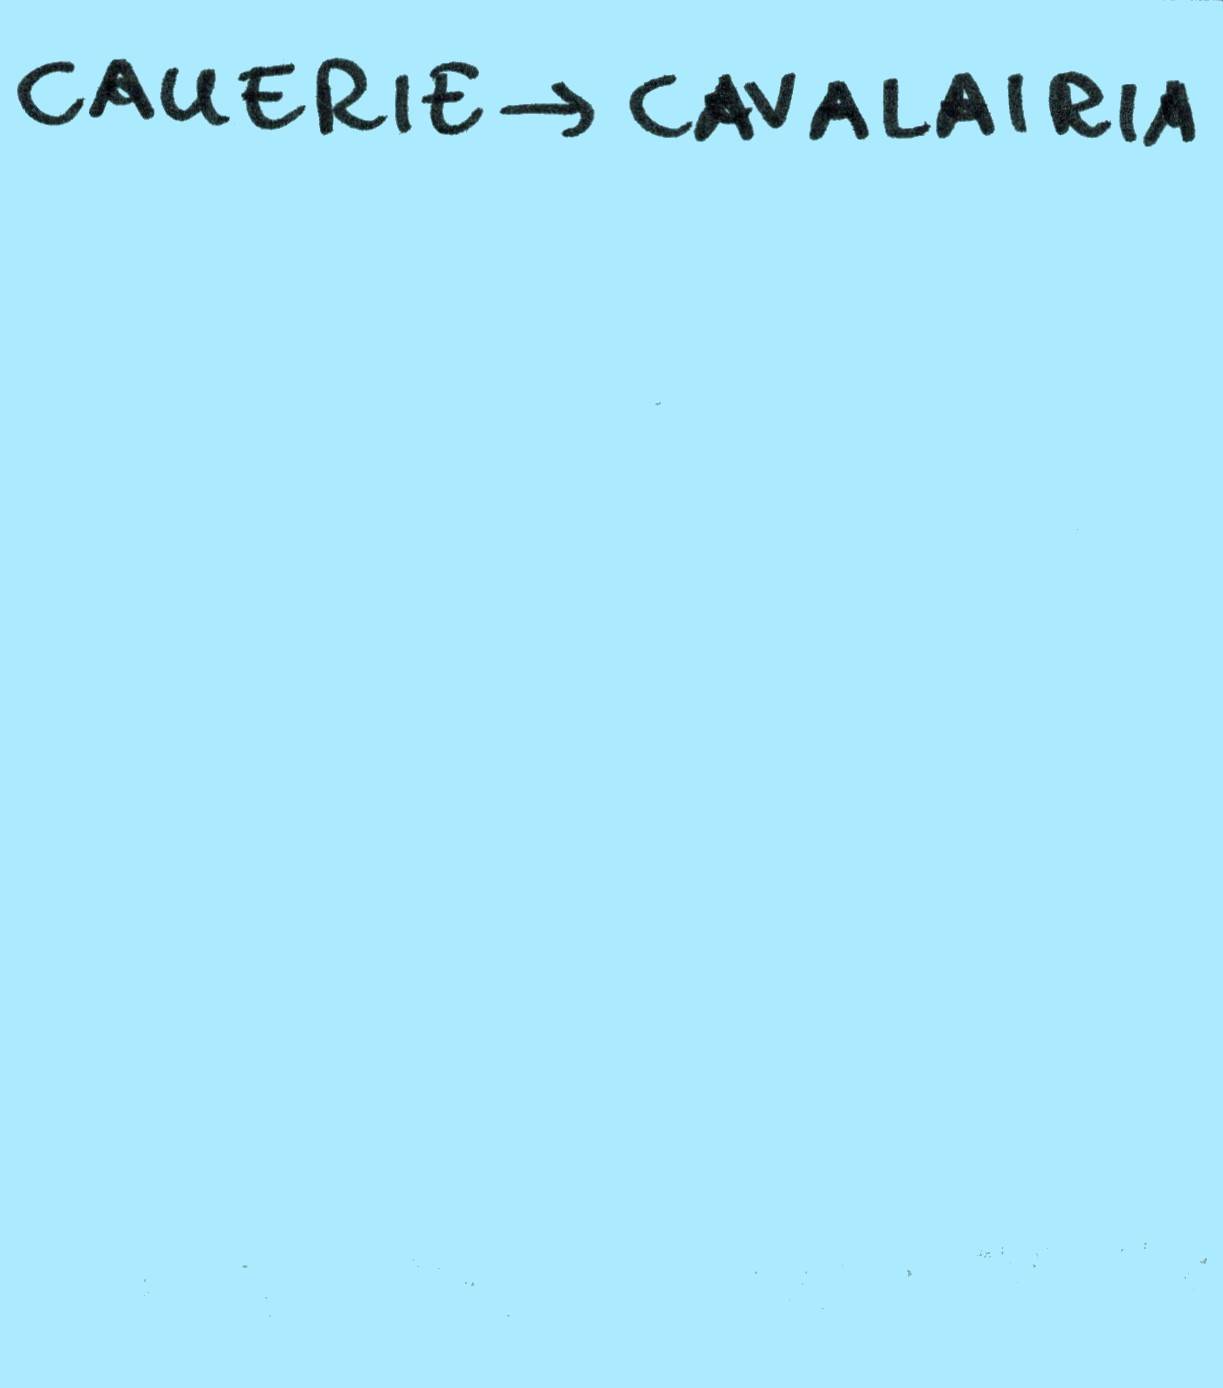 CAUERIE → CAVALAIRIA